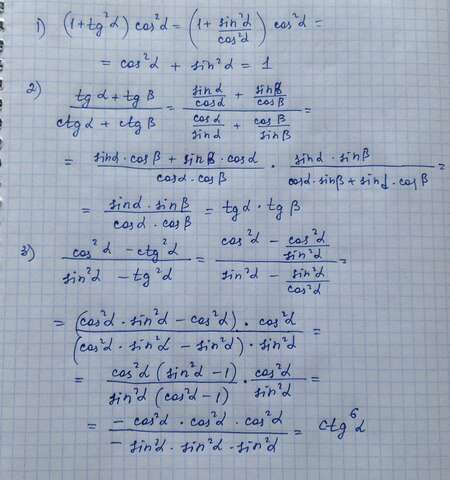 1) (1+tg²α) cos²α = (1 + sin²α/cos²α) cos²α =
= cos²α + sin²α = 1
2) (tgα + tgβ)/(ctgα + ctgβ) = (sinα/cosα + sinβ/cosβ)/(cosα/sinα + cosβ/sinβ) =
= (sinα·cosβ + sinβ·cosα)/(cosα·cosβ) · (sinα·sinβ)/(cosα·sinβ + sinα·cosβ) =
= (sinα·sinβ)/(cosα·cosβ) = tgα·tgβ
3) (cos²α - ctg²α)/(sin²α - tg²α) = (cos²α - cos²α/sin²α)/(sin²α - sin²α/cos²α) =
= ((cos²α·sin²α - cos²α)·cos²α)/((cos²α·sin²α - sin²α)·sin²α) =
= (cos²α(sin²α-1))/(sin²α(cos²α-1)) · cos²α/sin²α =
= (-cos²α·cos²α·cos²α)/(-sin²α·sin²α·sin²α) = ctg⁶α